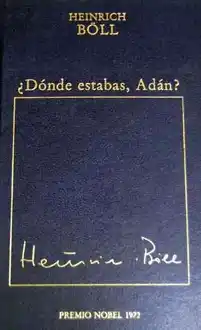 HEINRICH
BÖLL
¿Dónde estabas, Adán?
Heinrich Böll
PREMIO NOBEL 1972